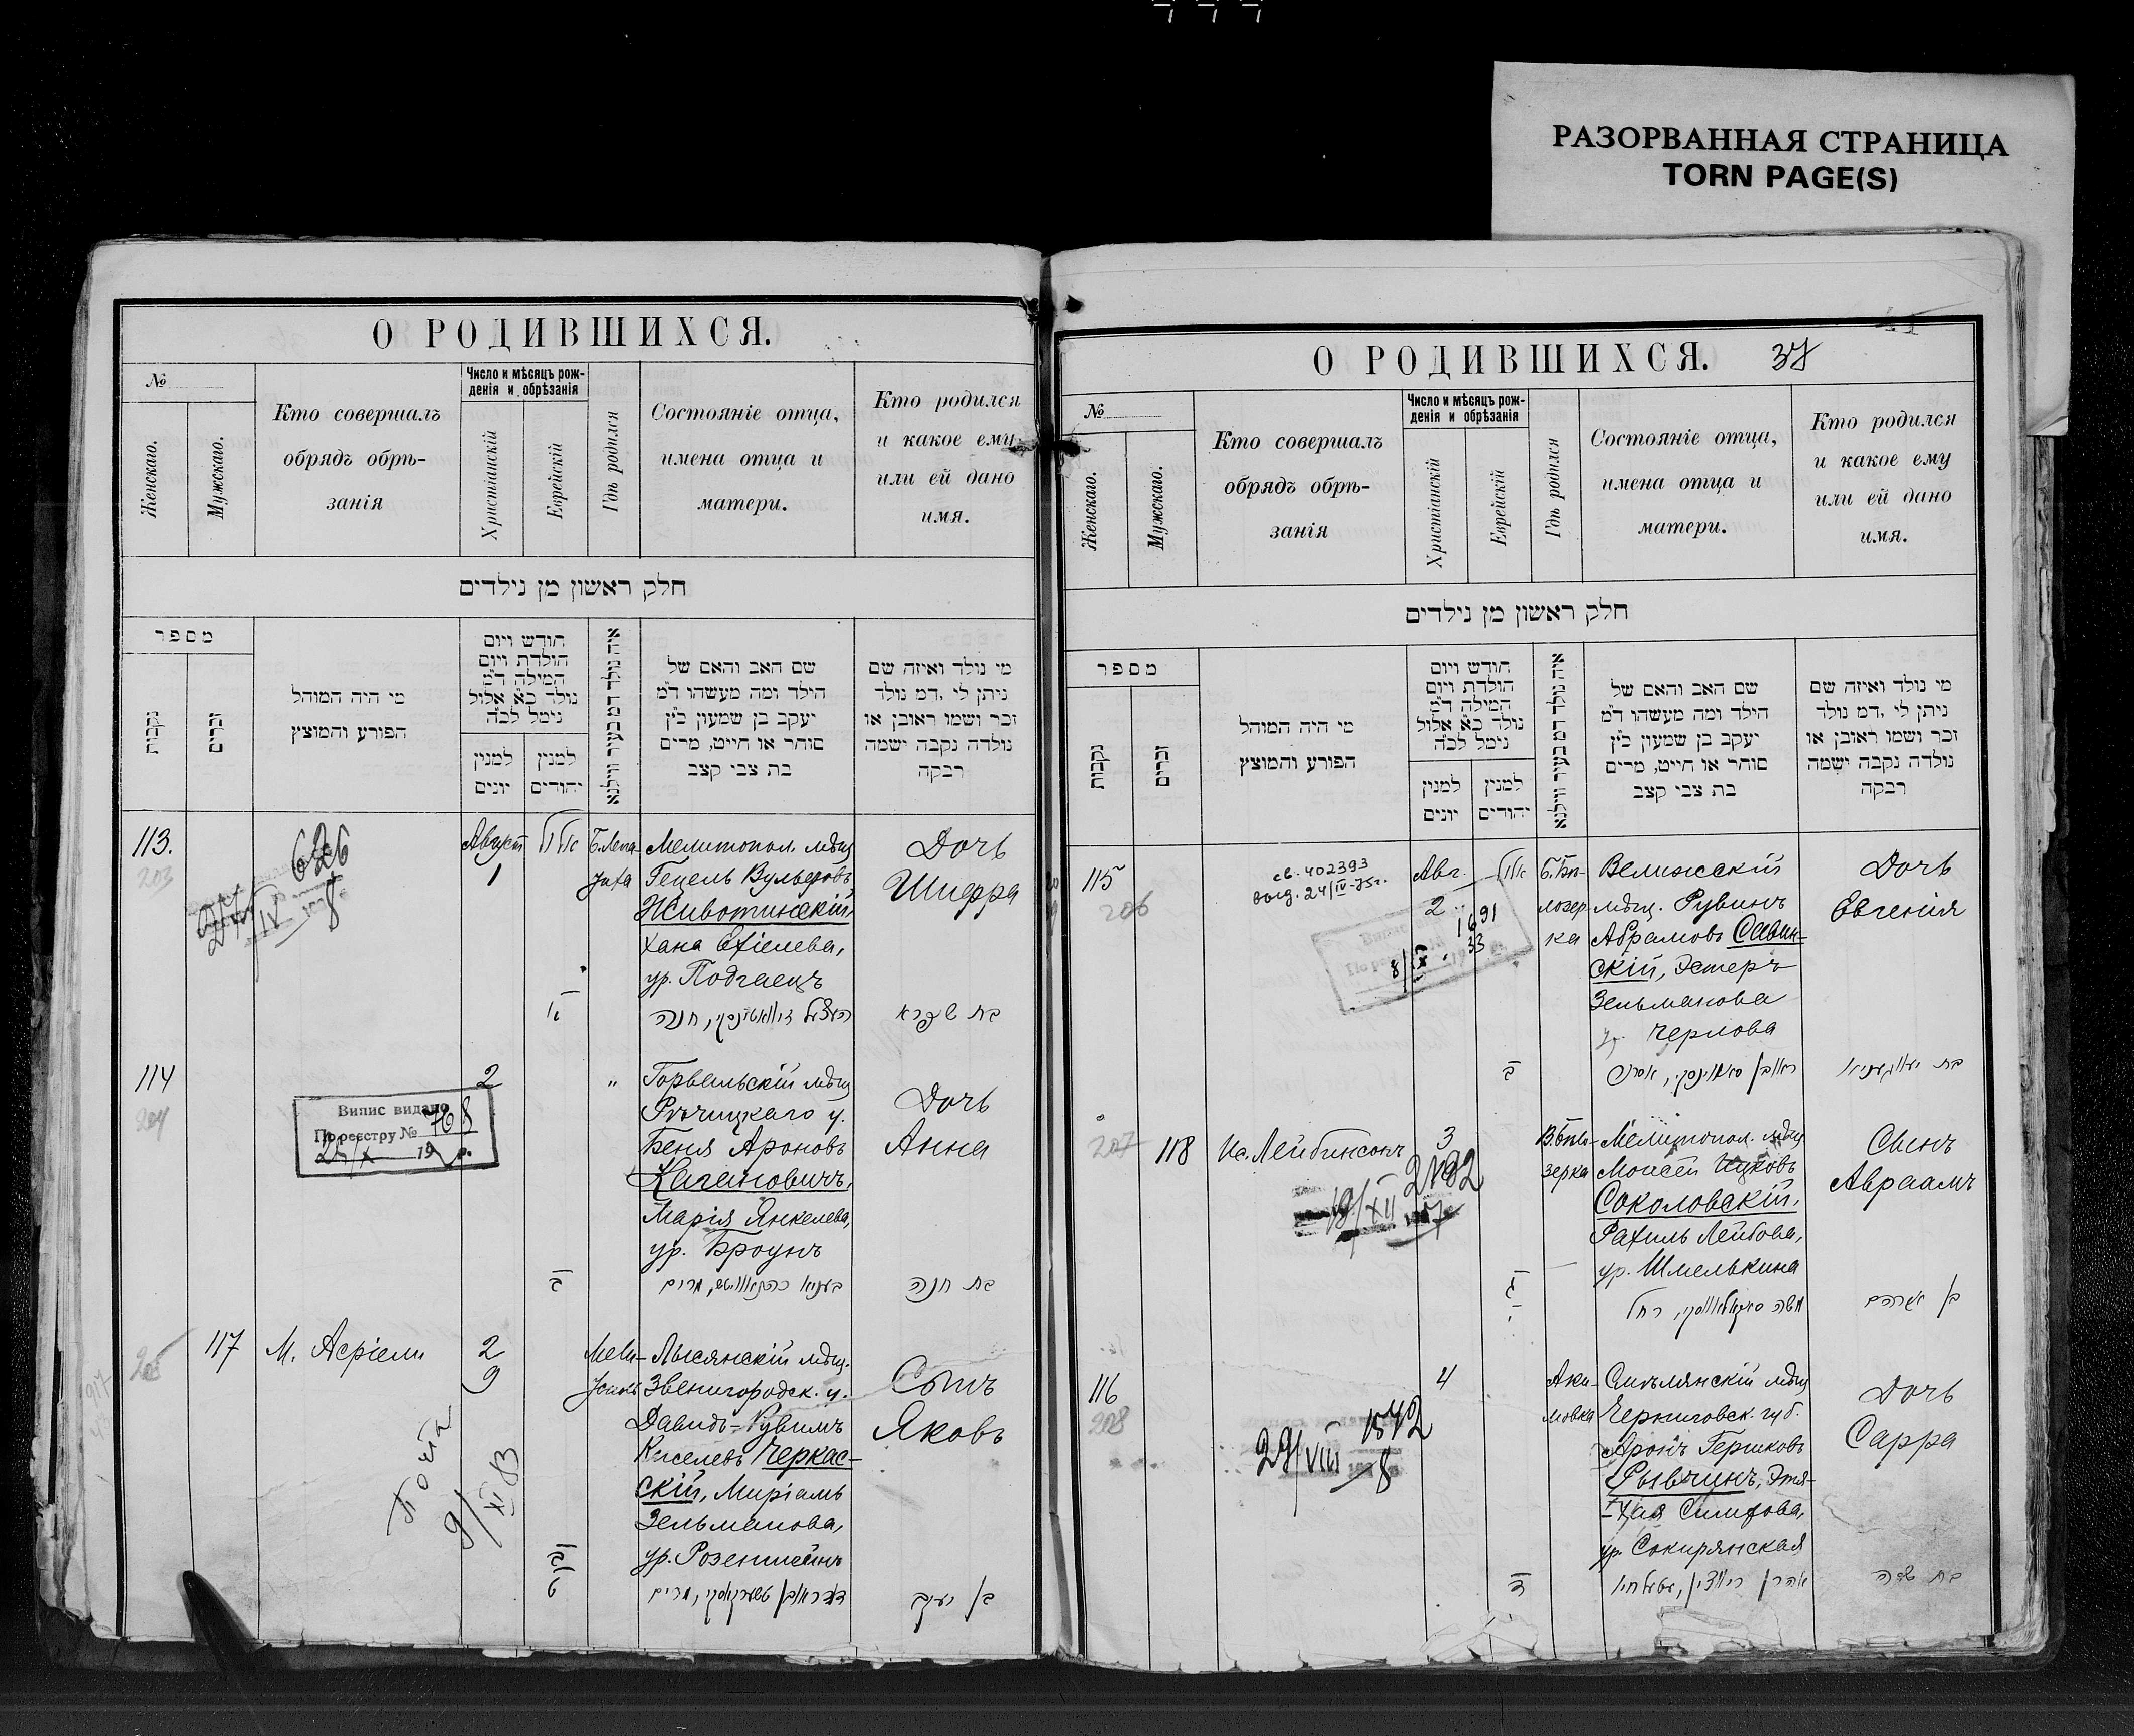 РАЗОРВАННАЯ СТРАНИЦА
TORN PAGE(S)
О РОДИВШИХСЯ.
№
Женскаго.
Мужскаго.
Кто совершалъ
обрядъ обрѣ-
занія
Число и мѣсяцъ рож-
денія и обрѣзанія
Христіанскій
Еврейскій
Гдѣ родился
Состояніе отца,
имена отца и
матери.
Кто родился
и какое ему
или ей дано
имя.
חלק ראשון מן נילדים
מספר
נקבות
זכרים
מי היה המוהל
הפורע והמוצץ
חודש ויום
הולדת ויום
המילה ד״מ
נולד כ״א אלול
נימל לכ״ה
למנין
יונים
למנין
יהודים
איה נולד דמ בעיר ווילנא
שם האב והאם של
הילד ומה מעשהו ד״מ
יעקב בן שמעון כ״ץ
סוחר או חייט, מרים
בת צבי קצב
מי נולד ואיזה שם
ניתן לי, דמ נולד
זכר ושמו ראובן או
נולדה נקבה ישמה
רבקה
113.
203
626
Август
1
Б. Лепа-
Мелитопол. мѣщ
Гецель Вульфовъ
Животинскій,
Хана Ехіелева,
ур. Подгаецъ
Дочь
Шифра
חנה
בת שפרא
114
204
Випис видано
По реєстру № 768
25/X 19 р.
2
"
Горвельскій мѣщ
Рѣчицкаго у.
Беня Ароновъ
Кагановичъ,
Марія Янкелева,
ур. Броунъ
Дочь
Анна
מרים
בת חנה
205
117
М. Асріели
2
9
Мели-
Лысянскій мѣщ.
Звенигородск. у.
Давидъ-Рувимъ
Киселевъ Черкас-
скій, Миріамъ
Зельманова,
ур. Розенштейнъ
Сынъ
Яковъ
9/XI 83
מרים
בן יעקב
О РОДИВШИХСЯ.
37
№
Женскаго.
Мужскаго.
Кто совершалъ
обрядъ обрѣ-
занія
Число и мѣсяцъ рож-
денія и обрѣзанія
Христіанскій
Еврейскій
Гдѣ родился
Состояніе отца,
имена отца и
матери.
Кто родился
и какое ему
или ей дано
имя.
חלק ראשון מן נילדים
מספר
נקבות
זכרים
מי היה המוהל
הפורע והמוצץ
חודש ויום
הולדת ויום
המילה ד״מ
נולד כ״א אלול
נימל לכ״ה
למנין
יונים
למנין
יהודים
איה נולד דמ בעיר ווילנא
שם האב והאם של
הילד ומה מעשהו ד״מ
יעקב בן שמעון כ״ץ
סוחר או חייט, מרים
בת צבי קצב
מי נולד ואיזה שם
ניתן לי, דמ נולד
זכר ושמו ראובן או
נולדה נקבה ישמה
רבקה
115
206
св. 402393
выд. 24/IV-75г.
Авг.
2
1691
8/IX 33
Б. Бѣ-
лозер-
ка
Велижскій
мѣщ. Рувинъ
Абрамовъ Савин-
скій, Эстеръ
Зельманова
у. Чернова
Дочь
Евгенія
ב
207
118
Ис. Лейбинсонъ
3
2192
19/XII
В. Бѣло-
зерка
Мелитопол. мѣщ
Моисей Ицковъ
Соколовскій,
Рахиль Лейбова,
ур. Шмелькина
Сынъ
Авраамъ
ג
משה סאקאלאווסקי, רחל
בן אברהם
116
208
4
1572
29/VIII 8
Аки-
мовка
Смѣлянскій мѣщ
Черниговск. губ.
Аронъ Гершковъ
Рывчинъ, Этя-
-Хая Симхова,
ур. Сокирянская
Дочь
Сарра
ד
בת שרה